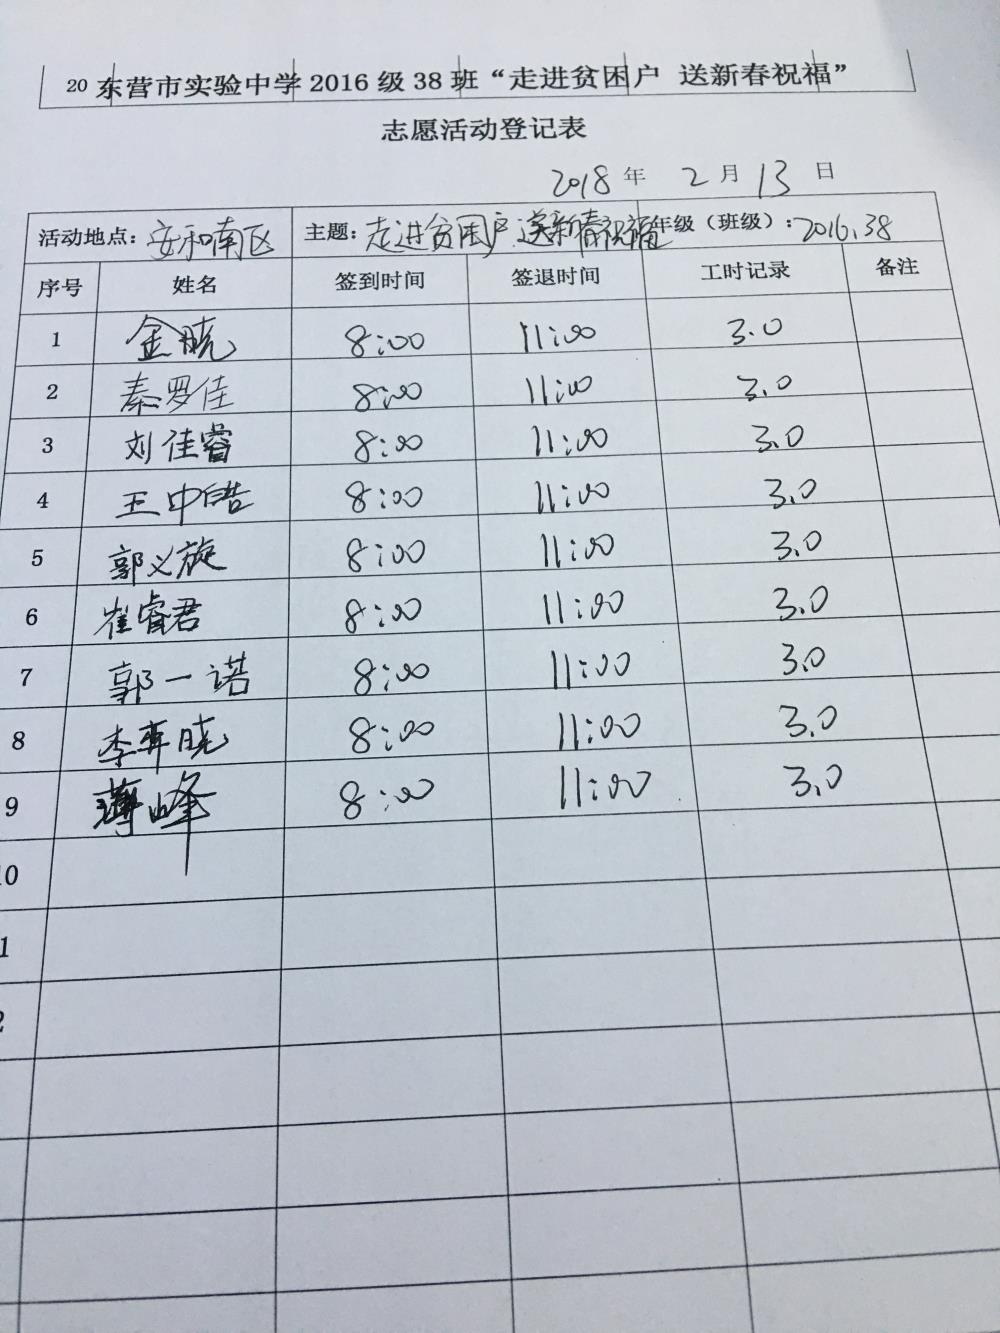 20 东营市实验中学 2016 级 38 班“走进贫困户 送新春祝福”
志愿活动登记表
2018 年 2 月 13 日
活动地点：安和南区 主题：走进贫困户 送新春祝福 年级（班级）：2016.38
序号 姓名 签到时间 签退时间 工时记录 备注
1 金晓 8:00 11:00 3.0
2 秦罗佳 8:00 11:00 3.0
3 刘佳睿 8:00 11:00 3.0
4 王中皓 8:00 11:00 3.0
5 郭义旋 8:00 11:00 3.0
6 崔睿君 8:00 11:00 3.0
7 郭一诺 8:00 11:00 3.0
8 李 晓 8:00 11:00 3.0
9 薄峰 8:00 11:00 3.0
0
1
2